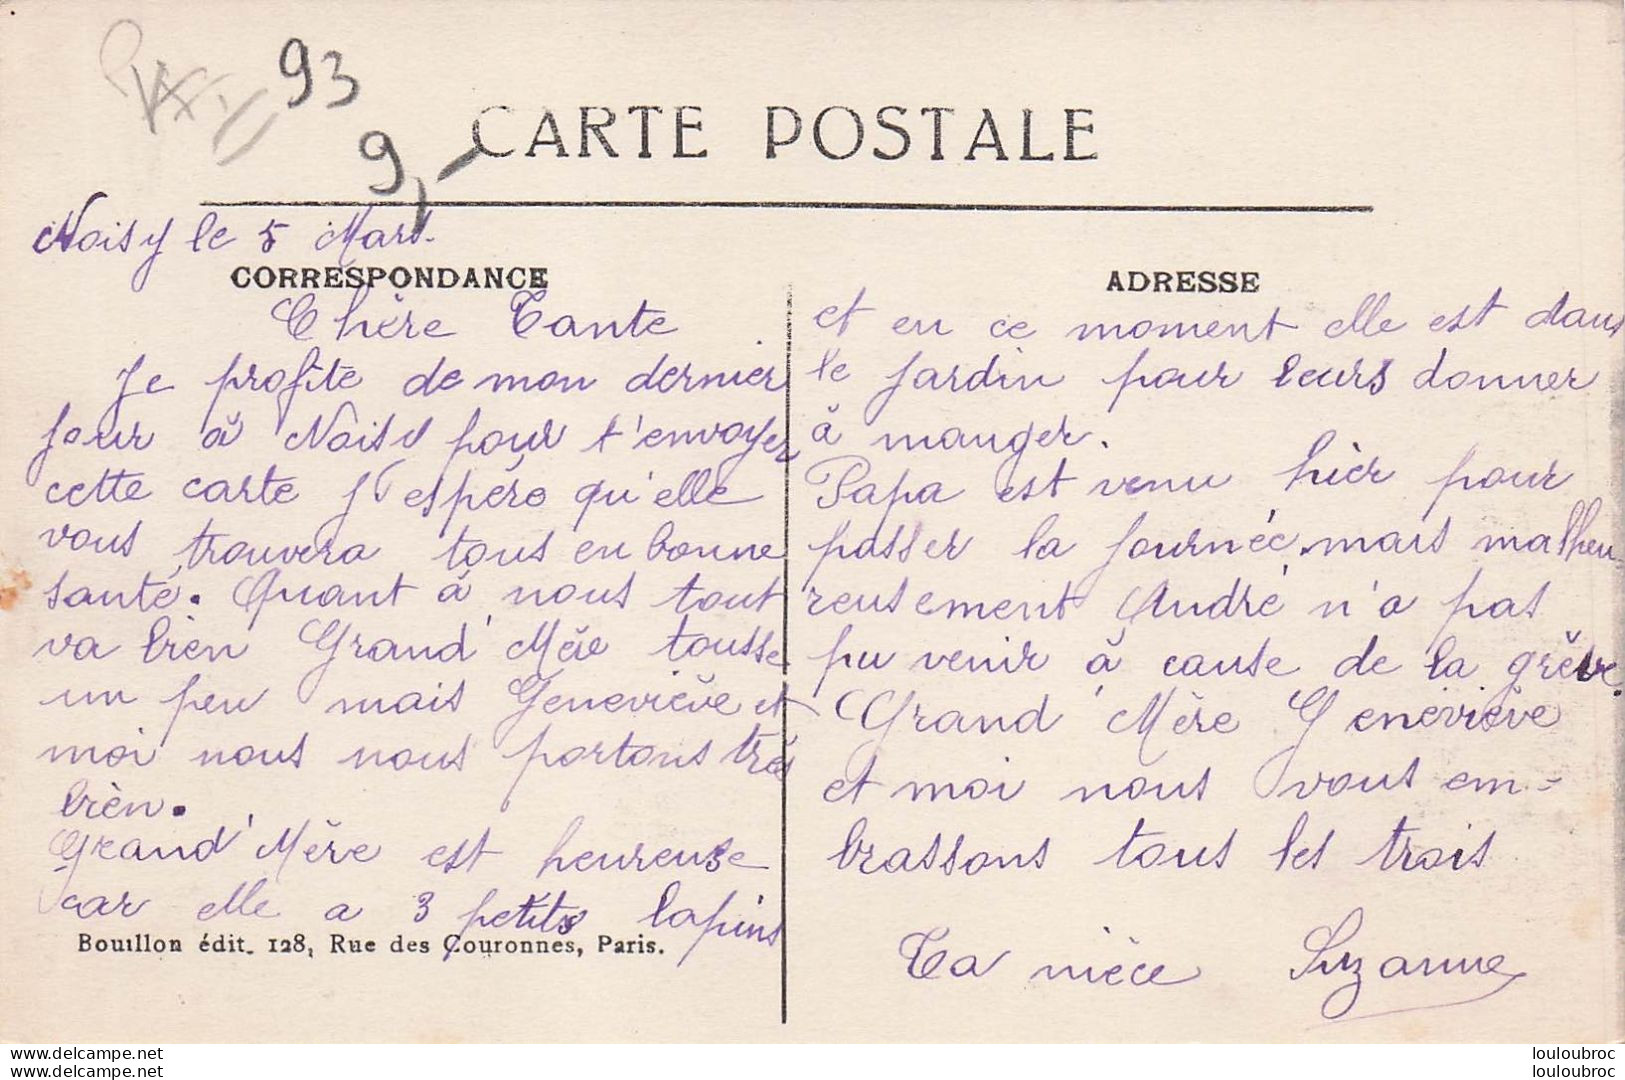 93
9,-
CARTE POSTALE
Noisy le 5 Mars.
CORRESPONDANCE
Chère Tante
Je profite de mon dernier
jour à Noisy pour t'envoyer
cette carte J'espére qu'elle
vous trouvera tous en bonne
santé. Quant à nous tout
va bien Grand' Mère tousse
un peu mais Geneviève et
moi nous nous portons très
bien.
Grand' Mère est heureuse
car elle a 3 petits lapins
Bouillon édit. 128, Rue des Couronnes, Paris.
ADRESSE
et en ce moment elle est dans
le jardin pour leurs donner
à manger.
Papa est venu hier pour
passer la journée. mais malheu-
reusement André n'a pas
pu venir à cause de la grève.
Grand' Mère Geneviève
et moi nous vous em-
brassons tous les trois
Ta nièce Suzanne
www.delcampe.net
www.delcampe.net
louloubroc
louloubroc